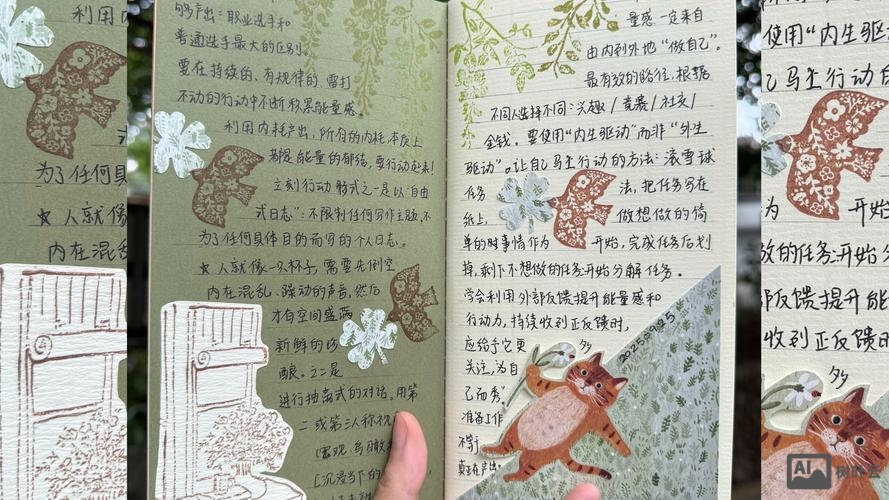 够产出：职业选手和
普通选手最大的区别。
要在持续的、有规律的、雷打
不动的行动中不断积累能量感。
利用内耗产出，所有的内耗，本质上
都是能量的郁结，要行动起来！
立刻行动 躺式之一是以"自由
式日志"：不限制任何写作主题，不
为了任何具体目的而写的个人日志。
★ 人就像一只杯子，需要先倒空
内在混乱、躁动的声音，然后
才有空间盛满
新鲜的
酿。之二是
进行抽离式的对话，用第
二或第三人称视
沉浸当下的
量感一定来自
由内到外地"做自己"。
最有效的路径，根据
不同人选择不同：兴趣/责任/社交/
金钱。要使用"内生驱动"而非"外生
驱动"。让自己马上行动的方法：滚雪球
任务法，把任务写在
纸上，做想做的简
单的时事情作为开始，完成任务后划
掉，剩下不想做的任务开始分解任务。
学会利用外部反馈提升能量感和
行动力，持续收到正反馈时，
应给予它更多
关注，为自
己而秀。
准备工作
不等于
真正产出。
20250925
利用内
为了任何具
★ 人就像
内在混乱
使用"内生驱
己马上行动的
为 开始
做的任务开始分
部反馈提升能
收到正反馈时
多
AI